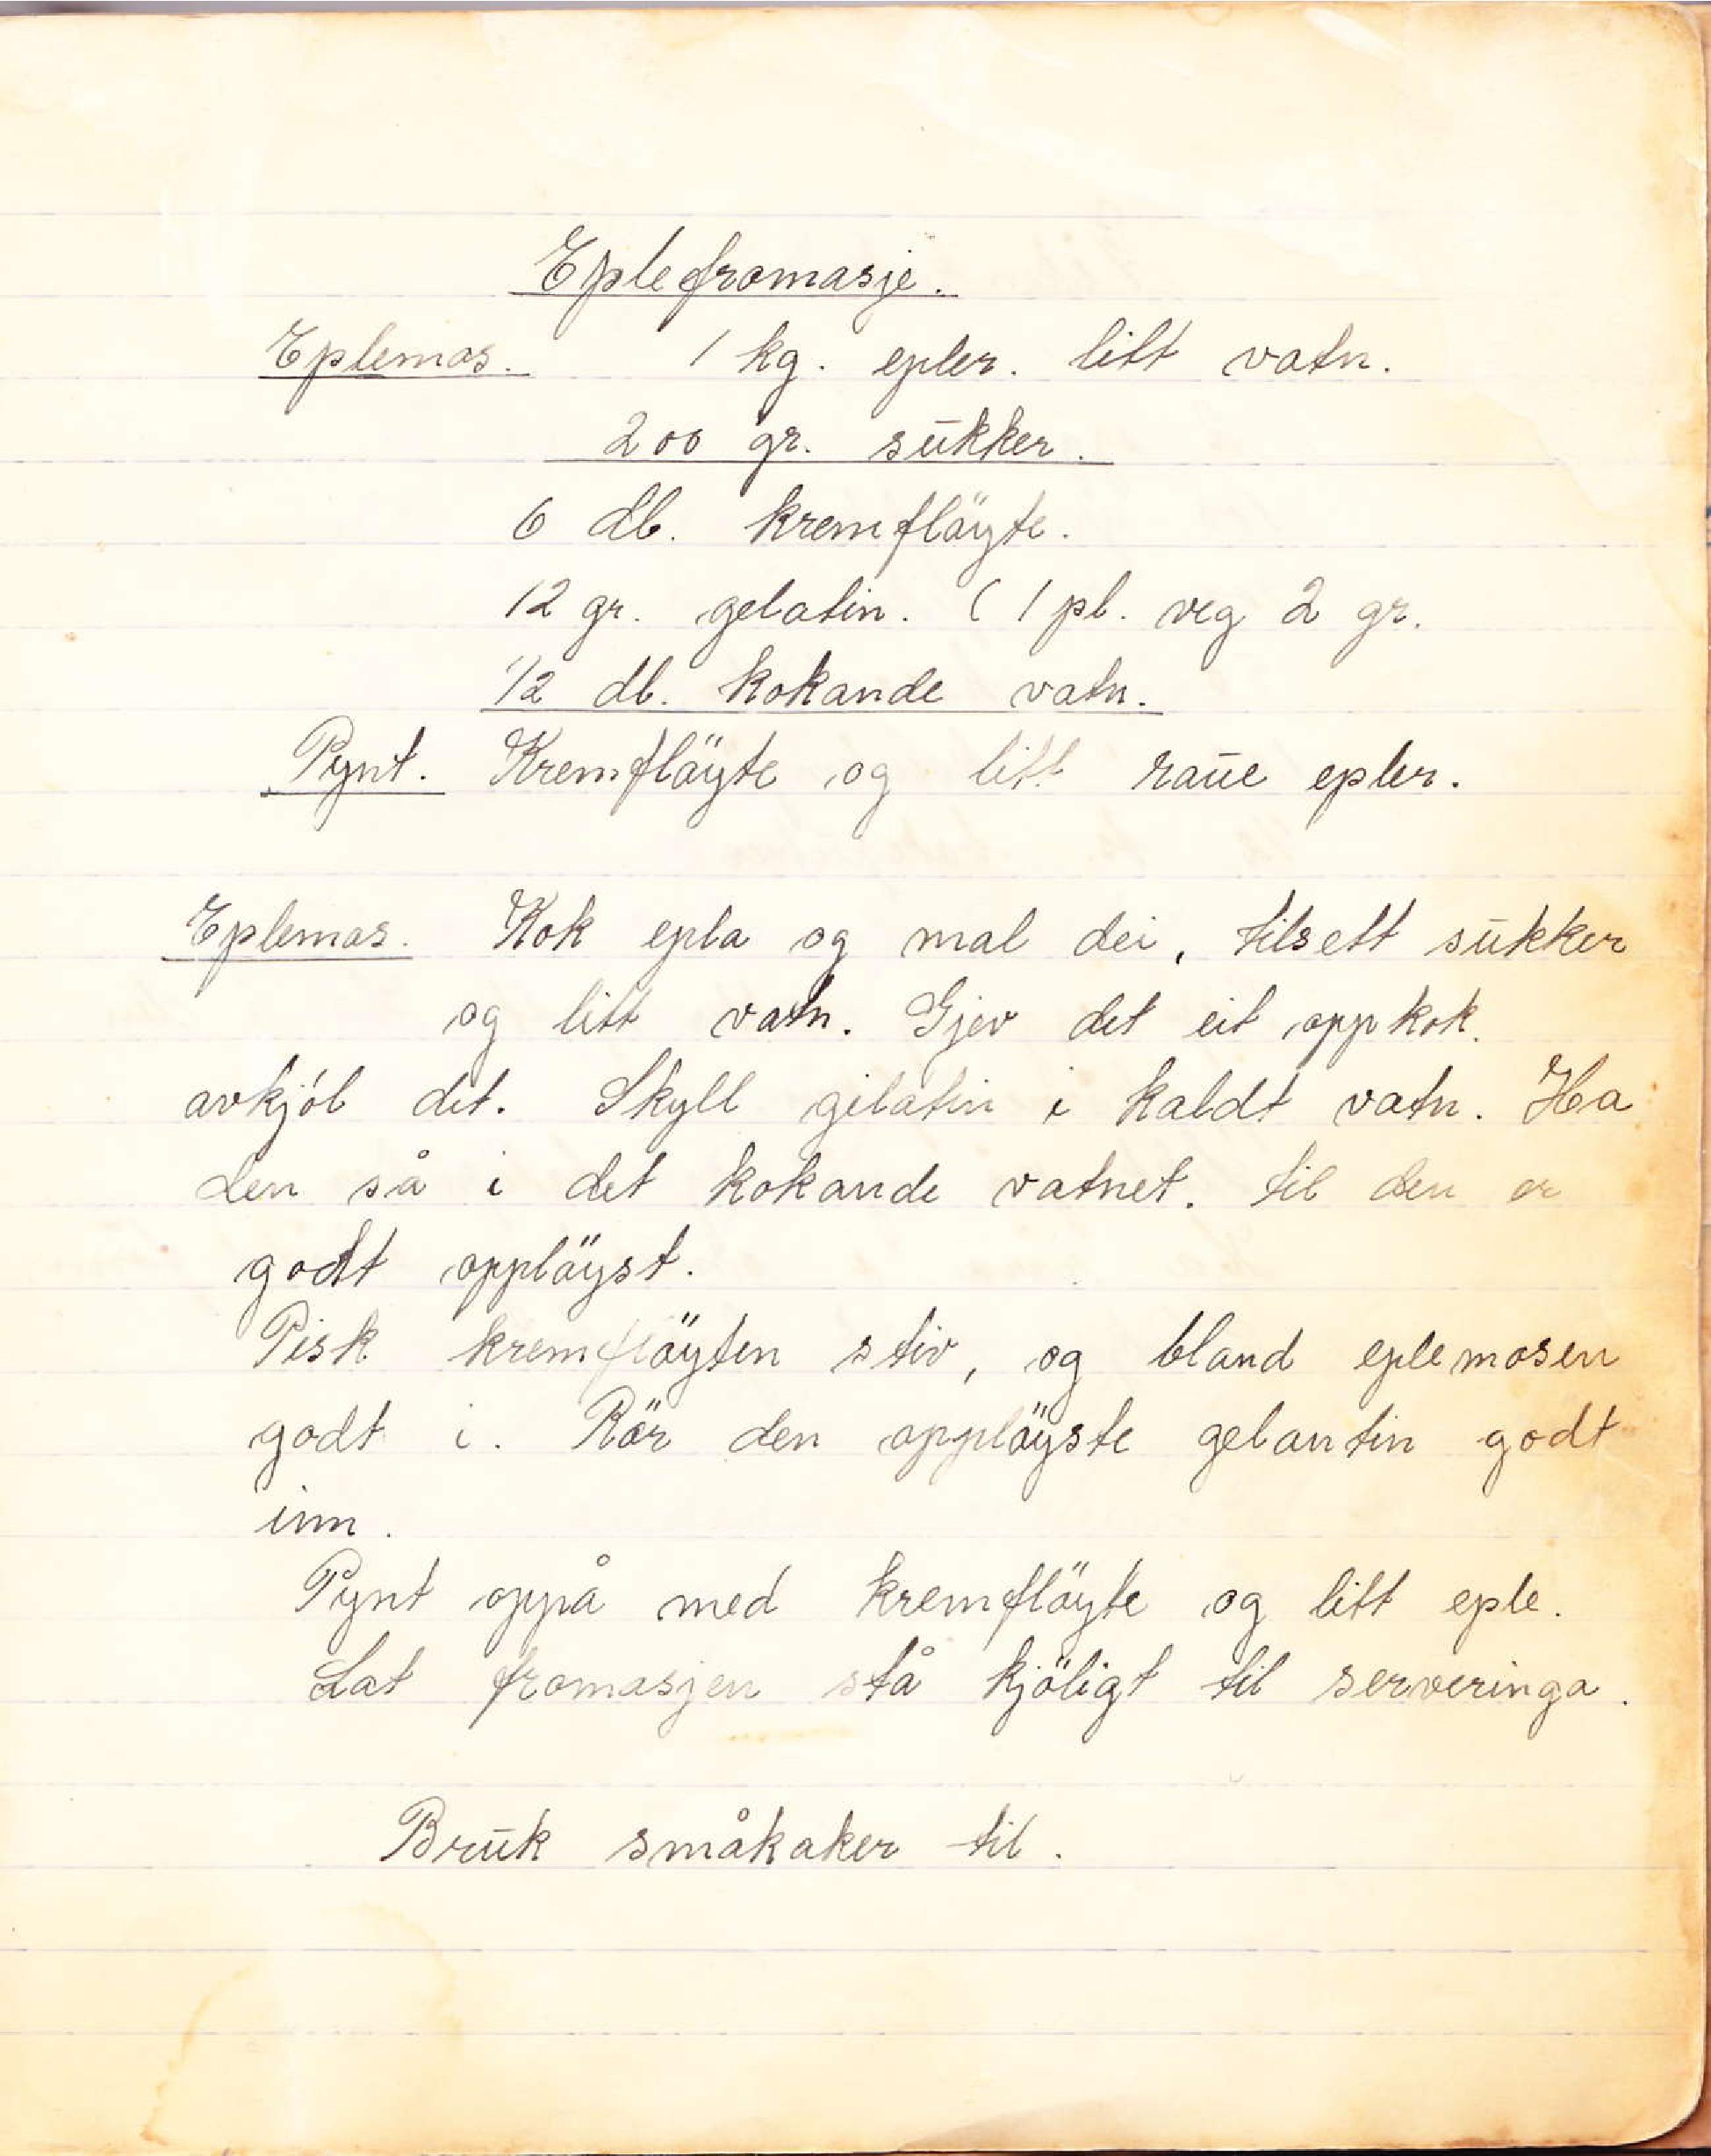 Eplefromasje.
Eplemos. 1 kg. epler. litt vatn.
200 gr. sukker.
6 dl. kremfløyte.
12 gr. gelatin. (1 pl. veg 2 gr.
1/2 dl. kokande vatn.
Pynt. Kremflöyte og litt raue epler.
Eplemos. Kok epla og mal dei, tilsett sukker
og litt vatn. Gjev det eit oppkok.
avkjöl det. Skyll gelatin i kaldt vatn. Ha
den så i det kokande vatnet. til den er
godt opplöyst.
Pisk kremflöyten stiv, og bland eplemosen
godt i. Rör den opplöyste gelantin godt
inn.
Pynt oppå med kremflöyte og litt eple.
Lat fromasjen stå kjöligt til serveringa.
Bruk småkaker til.